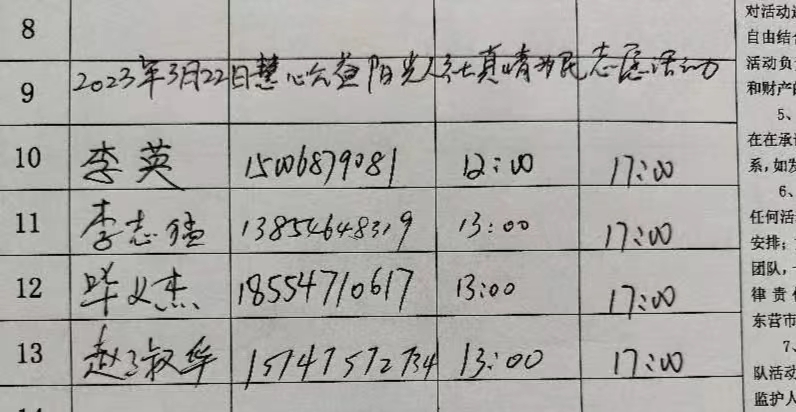 8
9 2023年3月22日慧心公益阳光人社真情为民志愿活动
10 李英 15006879081 12:00 17:00
11 李志猛 13854648319 13:00 17:00
12 毕义杰 18554710617 13:00 17:00
13 赵淑华 15747572734 13:00 17:00
对活动
自由结合
活动负
和财产的
5、
在在承
系,如发
6、
任何活
安排;
团队,
律责任
东营市
7、
队活动
监护人